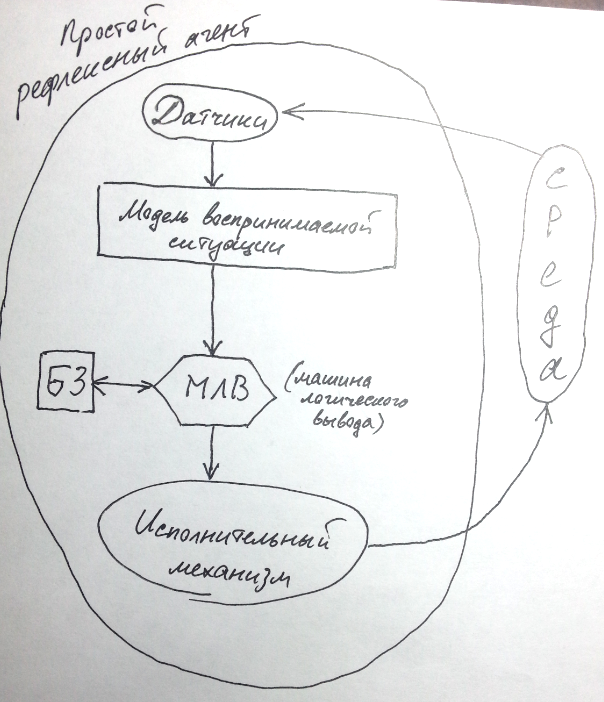 Простой
рефлексный агент
Датчики
Модель воспринимаемой
ситуации
БЗ
МЛВ
(машина
логического
вывода)
Исполнительный
механизм
среда